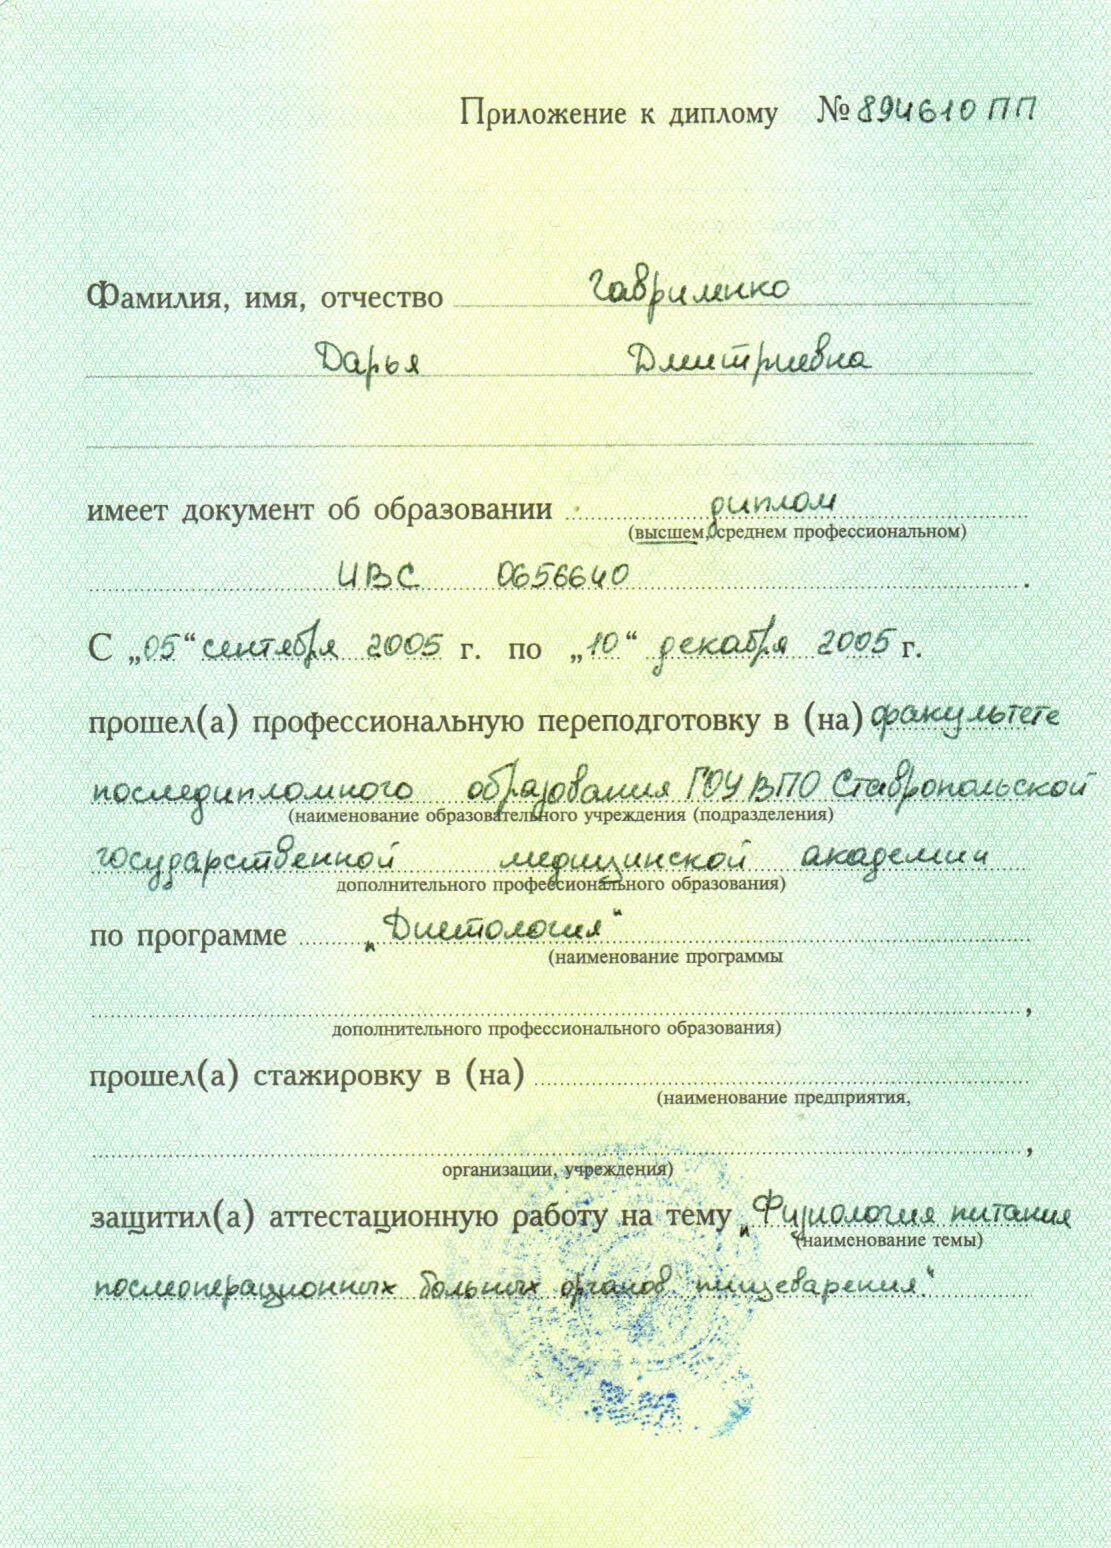 Приложение к диплому №894610 ПП
Фамилия, имя, отчество Гавриленко
Дарья Дмитриевна
имеет документ об образовании диплом
(высшем, среднем профессиональном)
ИВС 0656640.
С „05“ сентября 2005 г. по „10“ декабря 2005 г.
прошел(а) профессиональную переподготовку в (на) факультете
последипломного образования ГОУ ВПО Ставропольской
(наименование образовательного учреждения (подразделения)
государственной медицинской академии
дополнительного профессионального образования)
по программе „Диетология“
(наименование программы
,
дополнительного профессионального образования)
прошел(а) стажировку в (на)
(наименование предприятия,
,
организации, учреждения)
защитил(а) аттестационную работу на тему „Физиология питания
(наименование темы)
послеоперационных больных органов пищеварения“